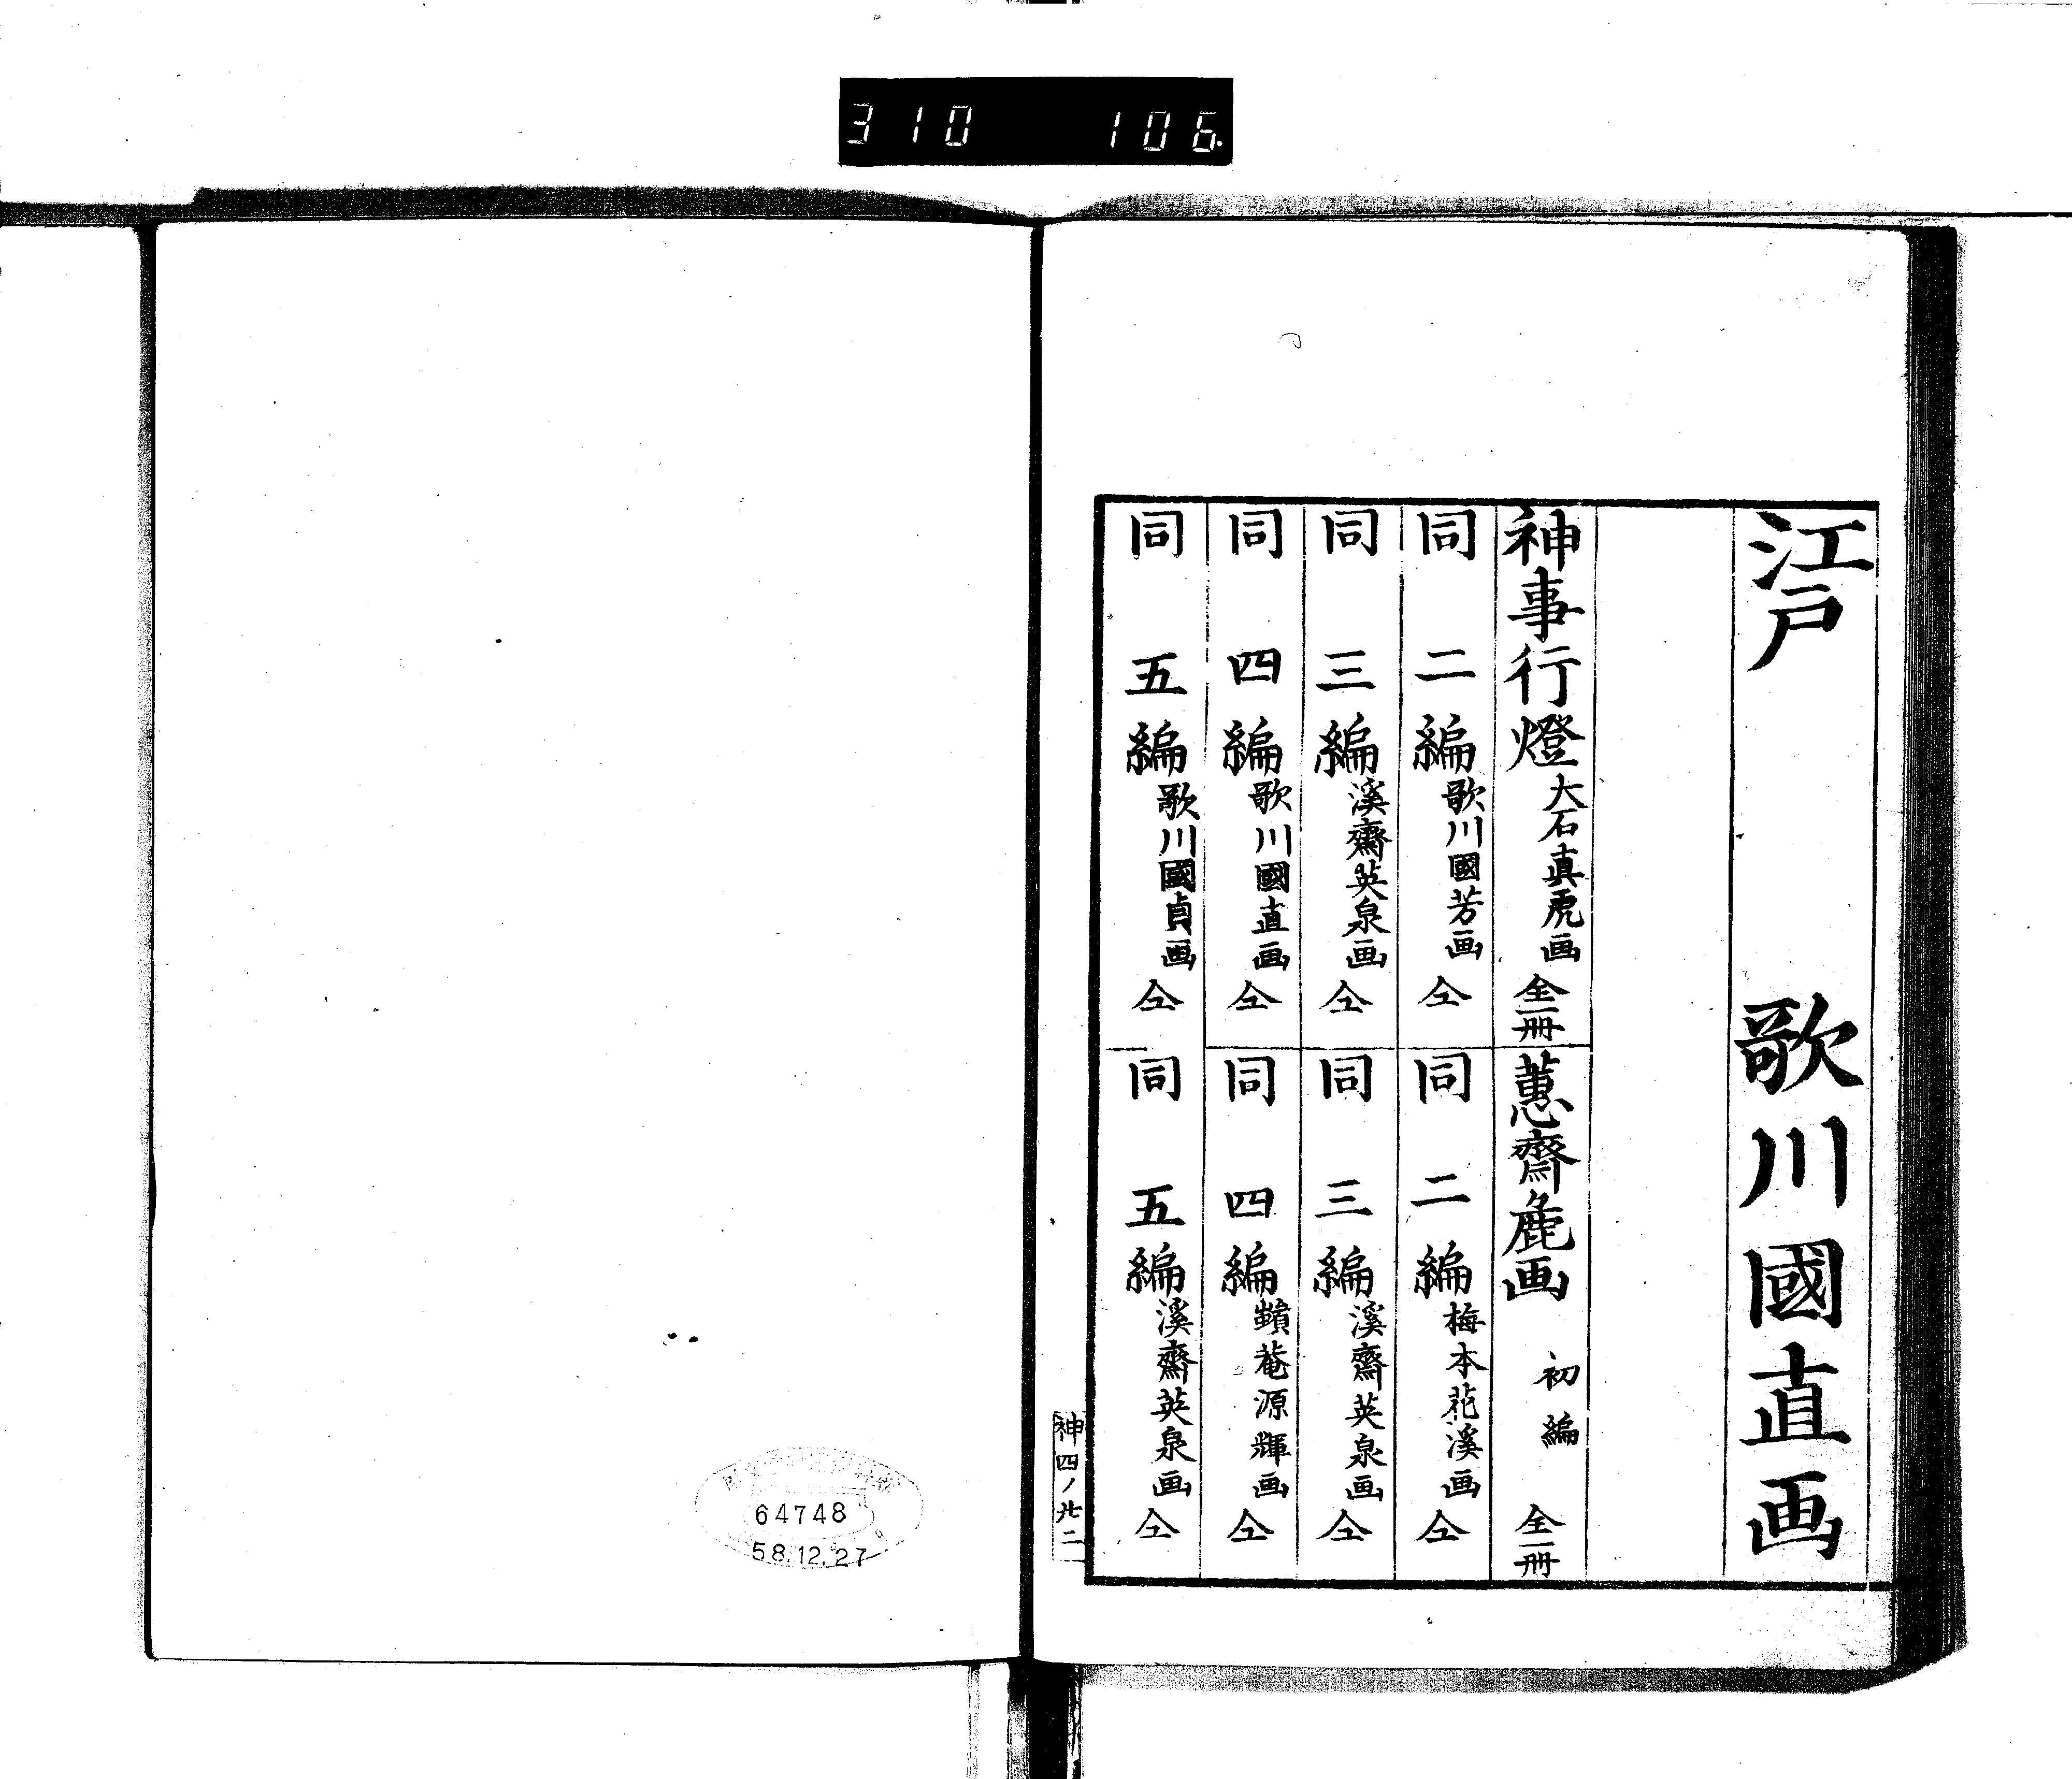 310 106
江戸 歌川國直画
神事行燈 大石真虎画 全一冊
同 二編 歌川國芳画 仝
同 三編 溪齋英泉画 仝
同 四編 歌川國直画 仝
同 五編 歌川國貞画 仝
蕙齋麁画 初編 全一冊
同 二編 梅本花溪画 仝
同 三編 溪齋英泉画 仝
同 四編 菴源輝画 仝
同 五編 溪齋英泉画 仝
神四ノ廿二
64748
58.12.27